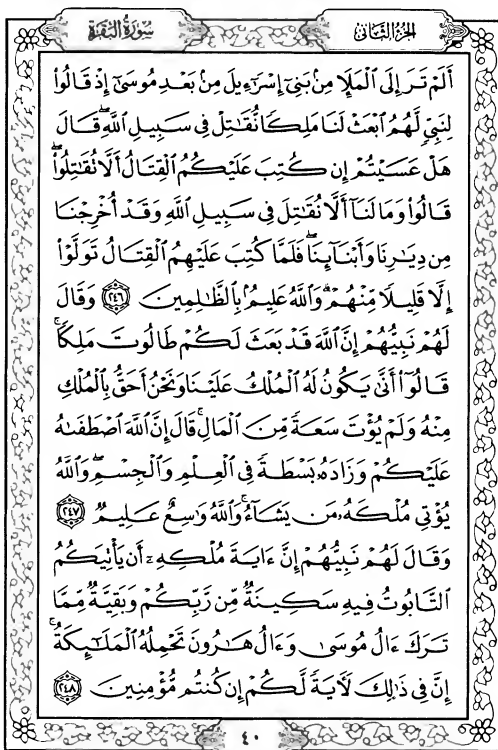 سُورَةُ البَقَرَةِ
الجُزْءُ الثَّانِي
أَلَمْ تَرَ إِلَى ٱلْمَلَإِ مِنۢ بَنِىٓ إِسْرَٰٓءِيلَ مِنۢ بَعْدِ مُوسَىٰٓ إِذْ قَالُوا۟
لِنَبِىٍّ لَّهُمُ ٱبْعَثْ لَنَا مَلِكًا نُّقَٰتِلْ فِى سَبِيلِ ٱللَّهِ ۖ قَالَ
هَلْ عَسَيْتُمْ إِن كُتِبَ عَلَيْكُمُ ٱلْقِتَالُ أَلَّا تُقَٰتِلُوا۟ ۖ
قَالُوا۟ وَمَا لَنَآ أَلَّا نُقَٰتِلَ فِى سَبِيلِ ٱللَّهِ وَقَدْ أُخْرِجْنَا
مِن دِيَٰرِنَا وَأَبْنَآئِنَا ۖ فَلَمَّا كُتِبَ عَلَيْهِمُ ٱلْقِتَالُ تَوَلَّوْا۟
إِلَّا قَلِيلًا مِّنْهُمْ ۗ وَٱللَّهُ عَلِيمٌۢ بِٱلظَّٰلِمِينَ ٢٤٦ وَقَالَ
لَهُمْ نَبِيُّهُمْ إِنَّ ٱللَّهَ قَدْ بَعَثَ لَكُمْ طَالُوتَ مَلِكًا ۚ
قَالُوٓا۟ أَنَّىٰ يَكُونُ لَهُ ٱلْمُلْكُ عَلَيْنَا وَنَحْنُ أَحَقُّ بِٱلْمُلْكِ
مِنْهُ وَلَمْ يُؤْتَ سَعَةً مِّنَ ٱلْمَالِ ۚ قَالَ إِنَّ ٱللَّهَ ٱصْطَفَىٰهُ
عَلَيْكُمْ وَزَادَهُۥ بَسْطَةً فِى ٱلْعِلْمِ وَٱلْجِسْمِ ۖ وَٱللَّهُ
يُؤْتِى مُلْكَهُۥ مَن يَشَآءُ ۚ وَٱللَّهُ وَٰسِعٌ عَلِيمٌ ٢٤٧
وَقَالَ لَهُمْ نَبِيُّهُمْ إِنَّ ءَايَةَ مُلْكِهِۦٓ أَن يَأْتِيَكُمُ
ٱلتَّابُوتُ فِيهِ سَكِينَةٌ مِّن رَّبِّكُمْ وَبَقِيَّةٌ مِّمَّا
تَرَكَ ءَالُ مُوسَىٰ وَءَالُ هَٰرُونَ تَحْمِلُهُ ٱلْمَلَٰٓئِكَةُ ۚ
إِنَّ فِى ذَٰلِكَ لَءَايَةً لَّكُمْ إِن كُنتُم مُّؤْمِنِينَ ٢٤٨
٤٠